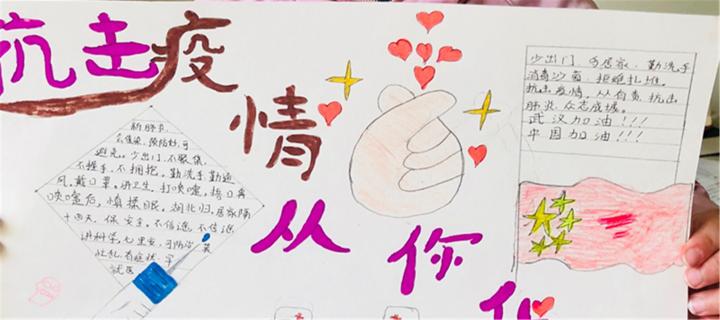 抗击疫
情
从
你
新肺炎
会传染，预防好，可
避免。少出门，不聚集，
不握手，不拥抱，勤洗手，勤通
风，戴口罩，讲卫生，打喷嚏，捂口鼻
喷嚏后，慎揉眼，湖北归，居家隔
十四天，保安全，不信谣，不传谣
讲科学，七里安，
少出门，多居家，勤洗手
消毒沙窗，拒绝扎堆。
抗击疫情，从自责，抗击
肺炎，众志成城。
武汉加油！！！
中国加油！！！